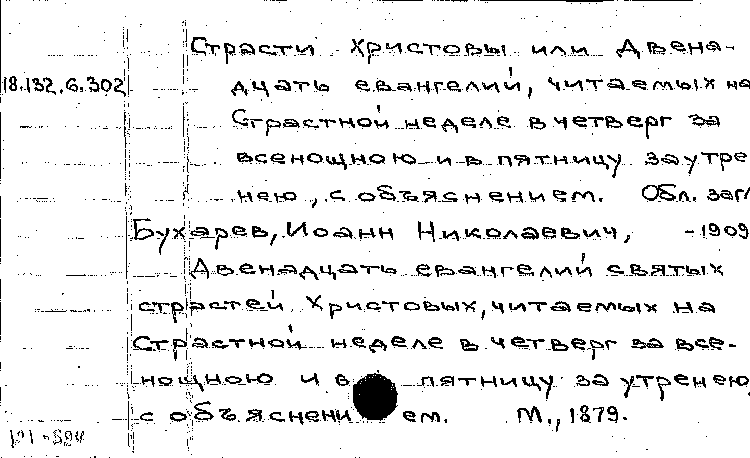 Страсти Христовы или Двена-
18.132.6.302 дцать евангелий, читаемых на
Страстной неделе в четверг за
всенощною и в пятницу заутре
нею, с объяснением. Обл. загл
Бухарев, Иоанн Николаевич, -1909
Двенадцать евангелий святых
страстей Христовых, читаемых на
Страстной неделе в четверг за все-
нощною и в пятницу за утренею,
с объяснением. М., 1879.